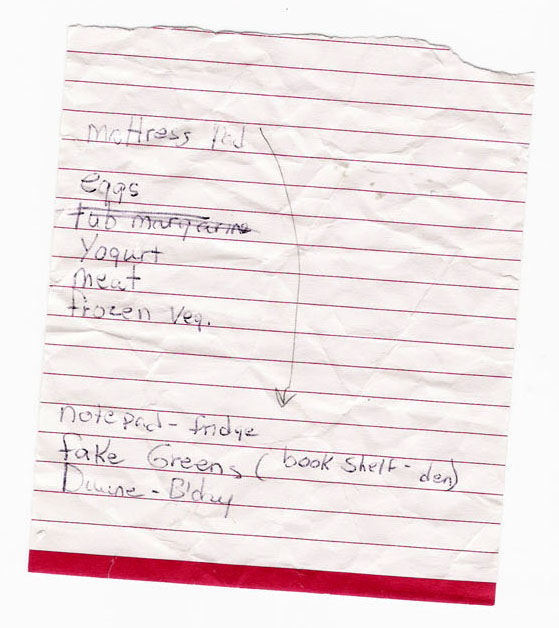 mattress Pad
eggs
tub margarine
Yogurt
meat
frozen veg.
notepad - fridge
fake Greens (book shelf - den)
Duane - B'day